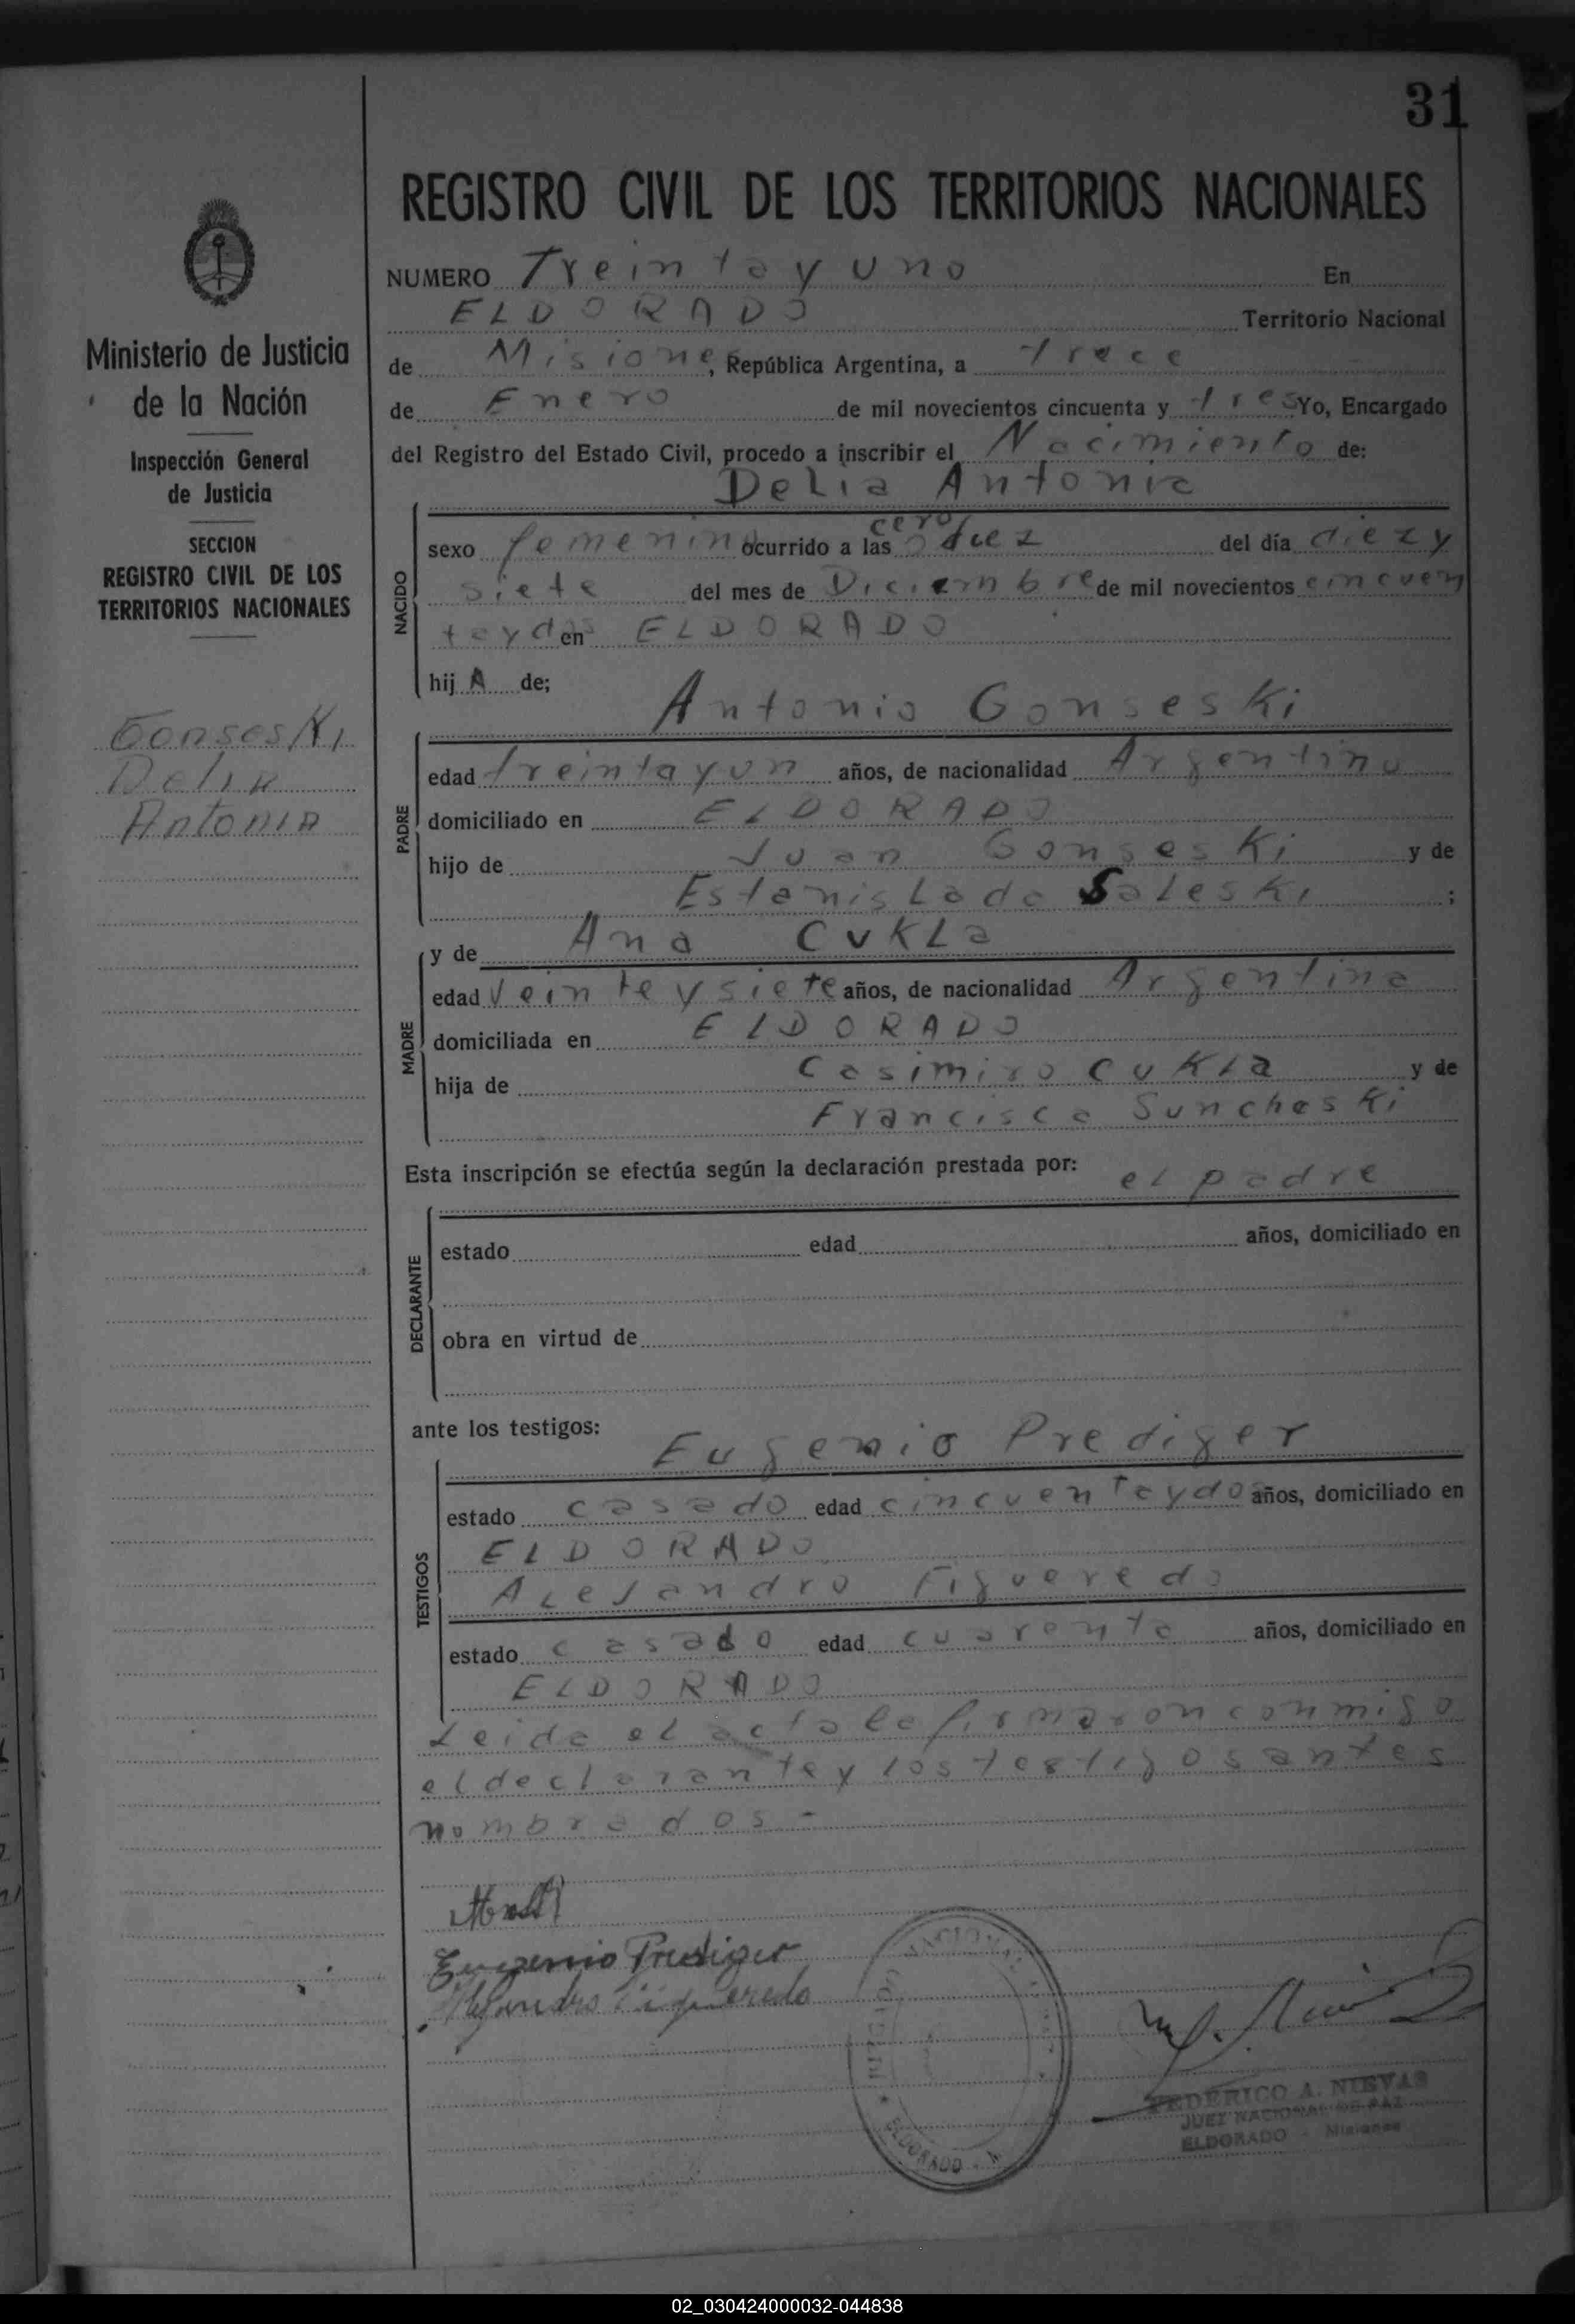 31
REGISTRO CIVIL DE LOS TERRITORIOS NACIONALES
Ministerio de Justicia
de la Nación
Inspección General
de Justicia
SECCION
REGISTRO CIVIL DE LOS
TERRITORIOS NACIONALES
Gonseski
Delia
Antonia
NUMERO Treinta y uno En
ELDORADO Territorio Nacional
de Misiones, República Argentina, a trece
de Enero de mil novecientos cincuenta y tres Yo, Encargado
del Registro del Estado Civil, procedo a inscribir el Nacimiento de:
Delia Antonia
NACIDO
cero
sexo femenino ocurrido a las diez del día diez y
siete del mes de Diciembre de mil novecientos cincuen
ta y dos en ELDORADO
hij A de;
Antonio Gonseski
PADRE
edad treinta y un años, de nacionalidad Argentino
domiciliado en ELDORADO
hijo de Juan Gonseski y de
Estanislada Saleski ;
y de Ana Cukla
MADRE
edad veinte y siete años, de nacionalidad Argentina
domiciliada en ELDORADO
hija de Casimiro Cukla y de
Francisca Suncheski
Esta inscripción se efectúa según la declaración prestada por: el padre
DECLARANTE
estado edad años, domiciliado en
obra en virtud de
ante los testigos:
Eugenio Prediger
TESTIGOS
estado casado edad cincuenta y dos años, domiciliado en
ELDORADO
Alejandro Figueredo
estado casado edad cuarenta años, domiciliado en
ELDORADO
Leida el acta la firmaron conmigo
el declarante y los testigos antes
nombrados -
Eugenio Prediger
Alejandro Figueredo
NACIONAL
ELDORADO
FEDERICO A. NIEVAS
JUEZ NACIONAL DE PAZ
ELDORADO - Misiones
02_030424000032-044838